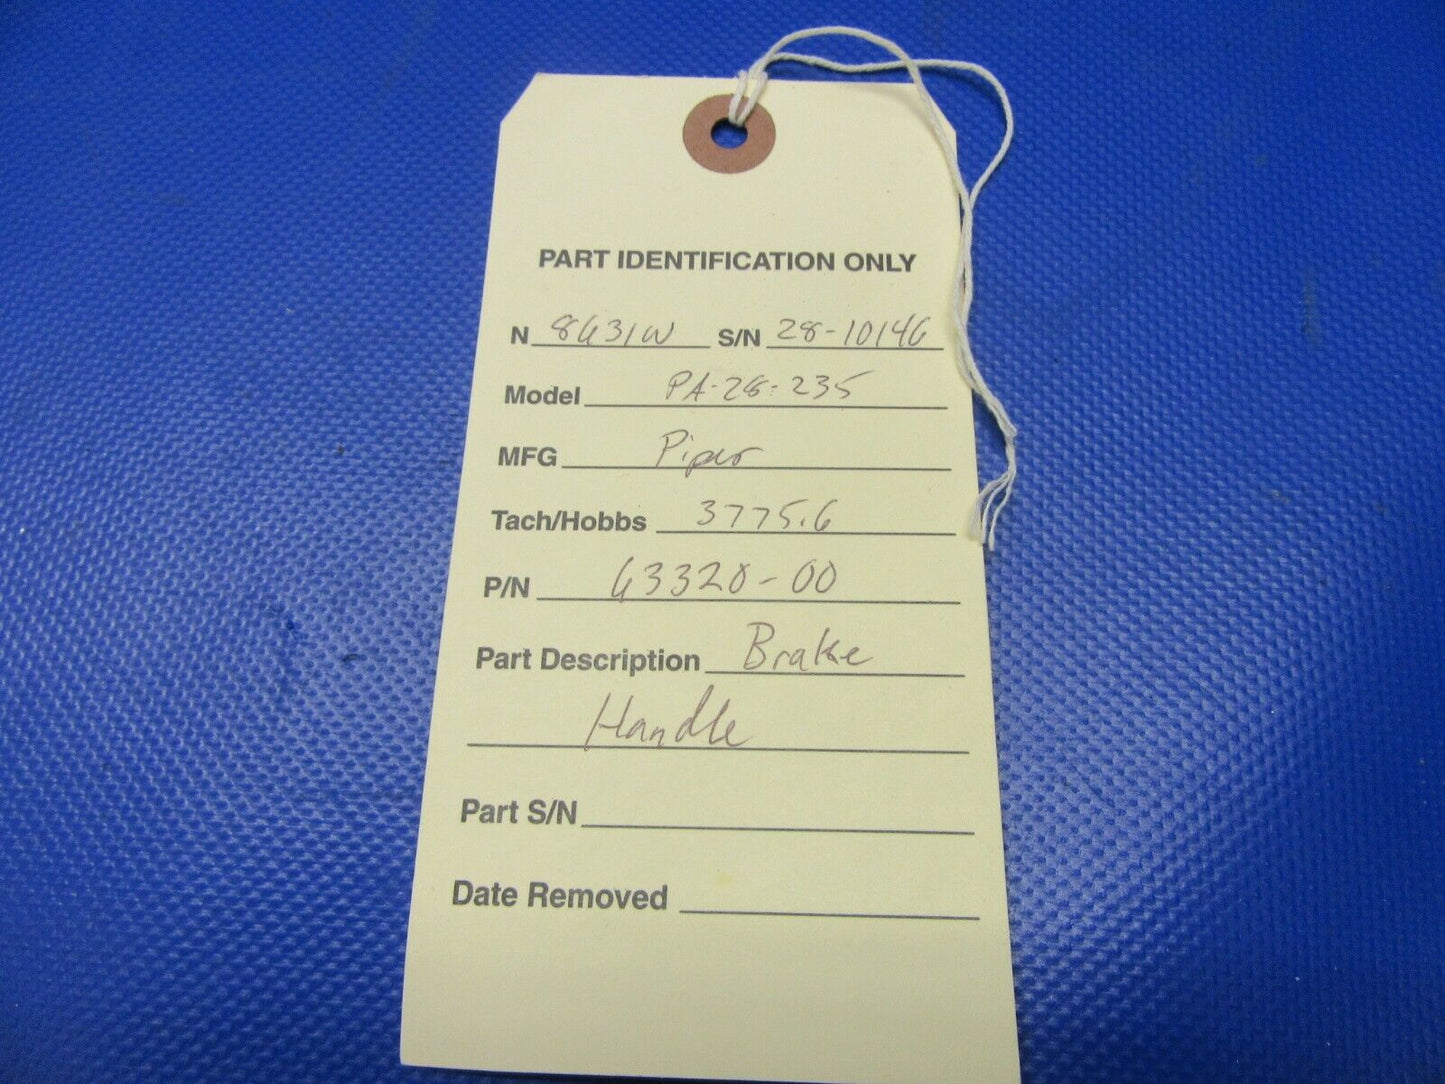 PART IDENTIFICATION ONLY
N 8631W S/N 28-10146
Model PA-28-235
MFG Piper
Tach/Hobbs 3775.6
P/N 63320-00
Part Description Brake
Handle
Part S/N
Date Removed